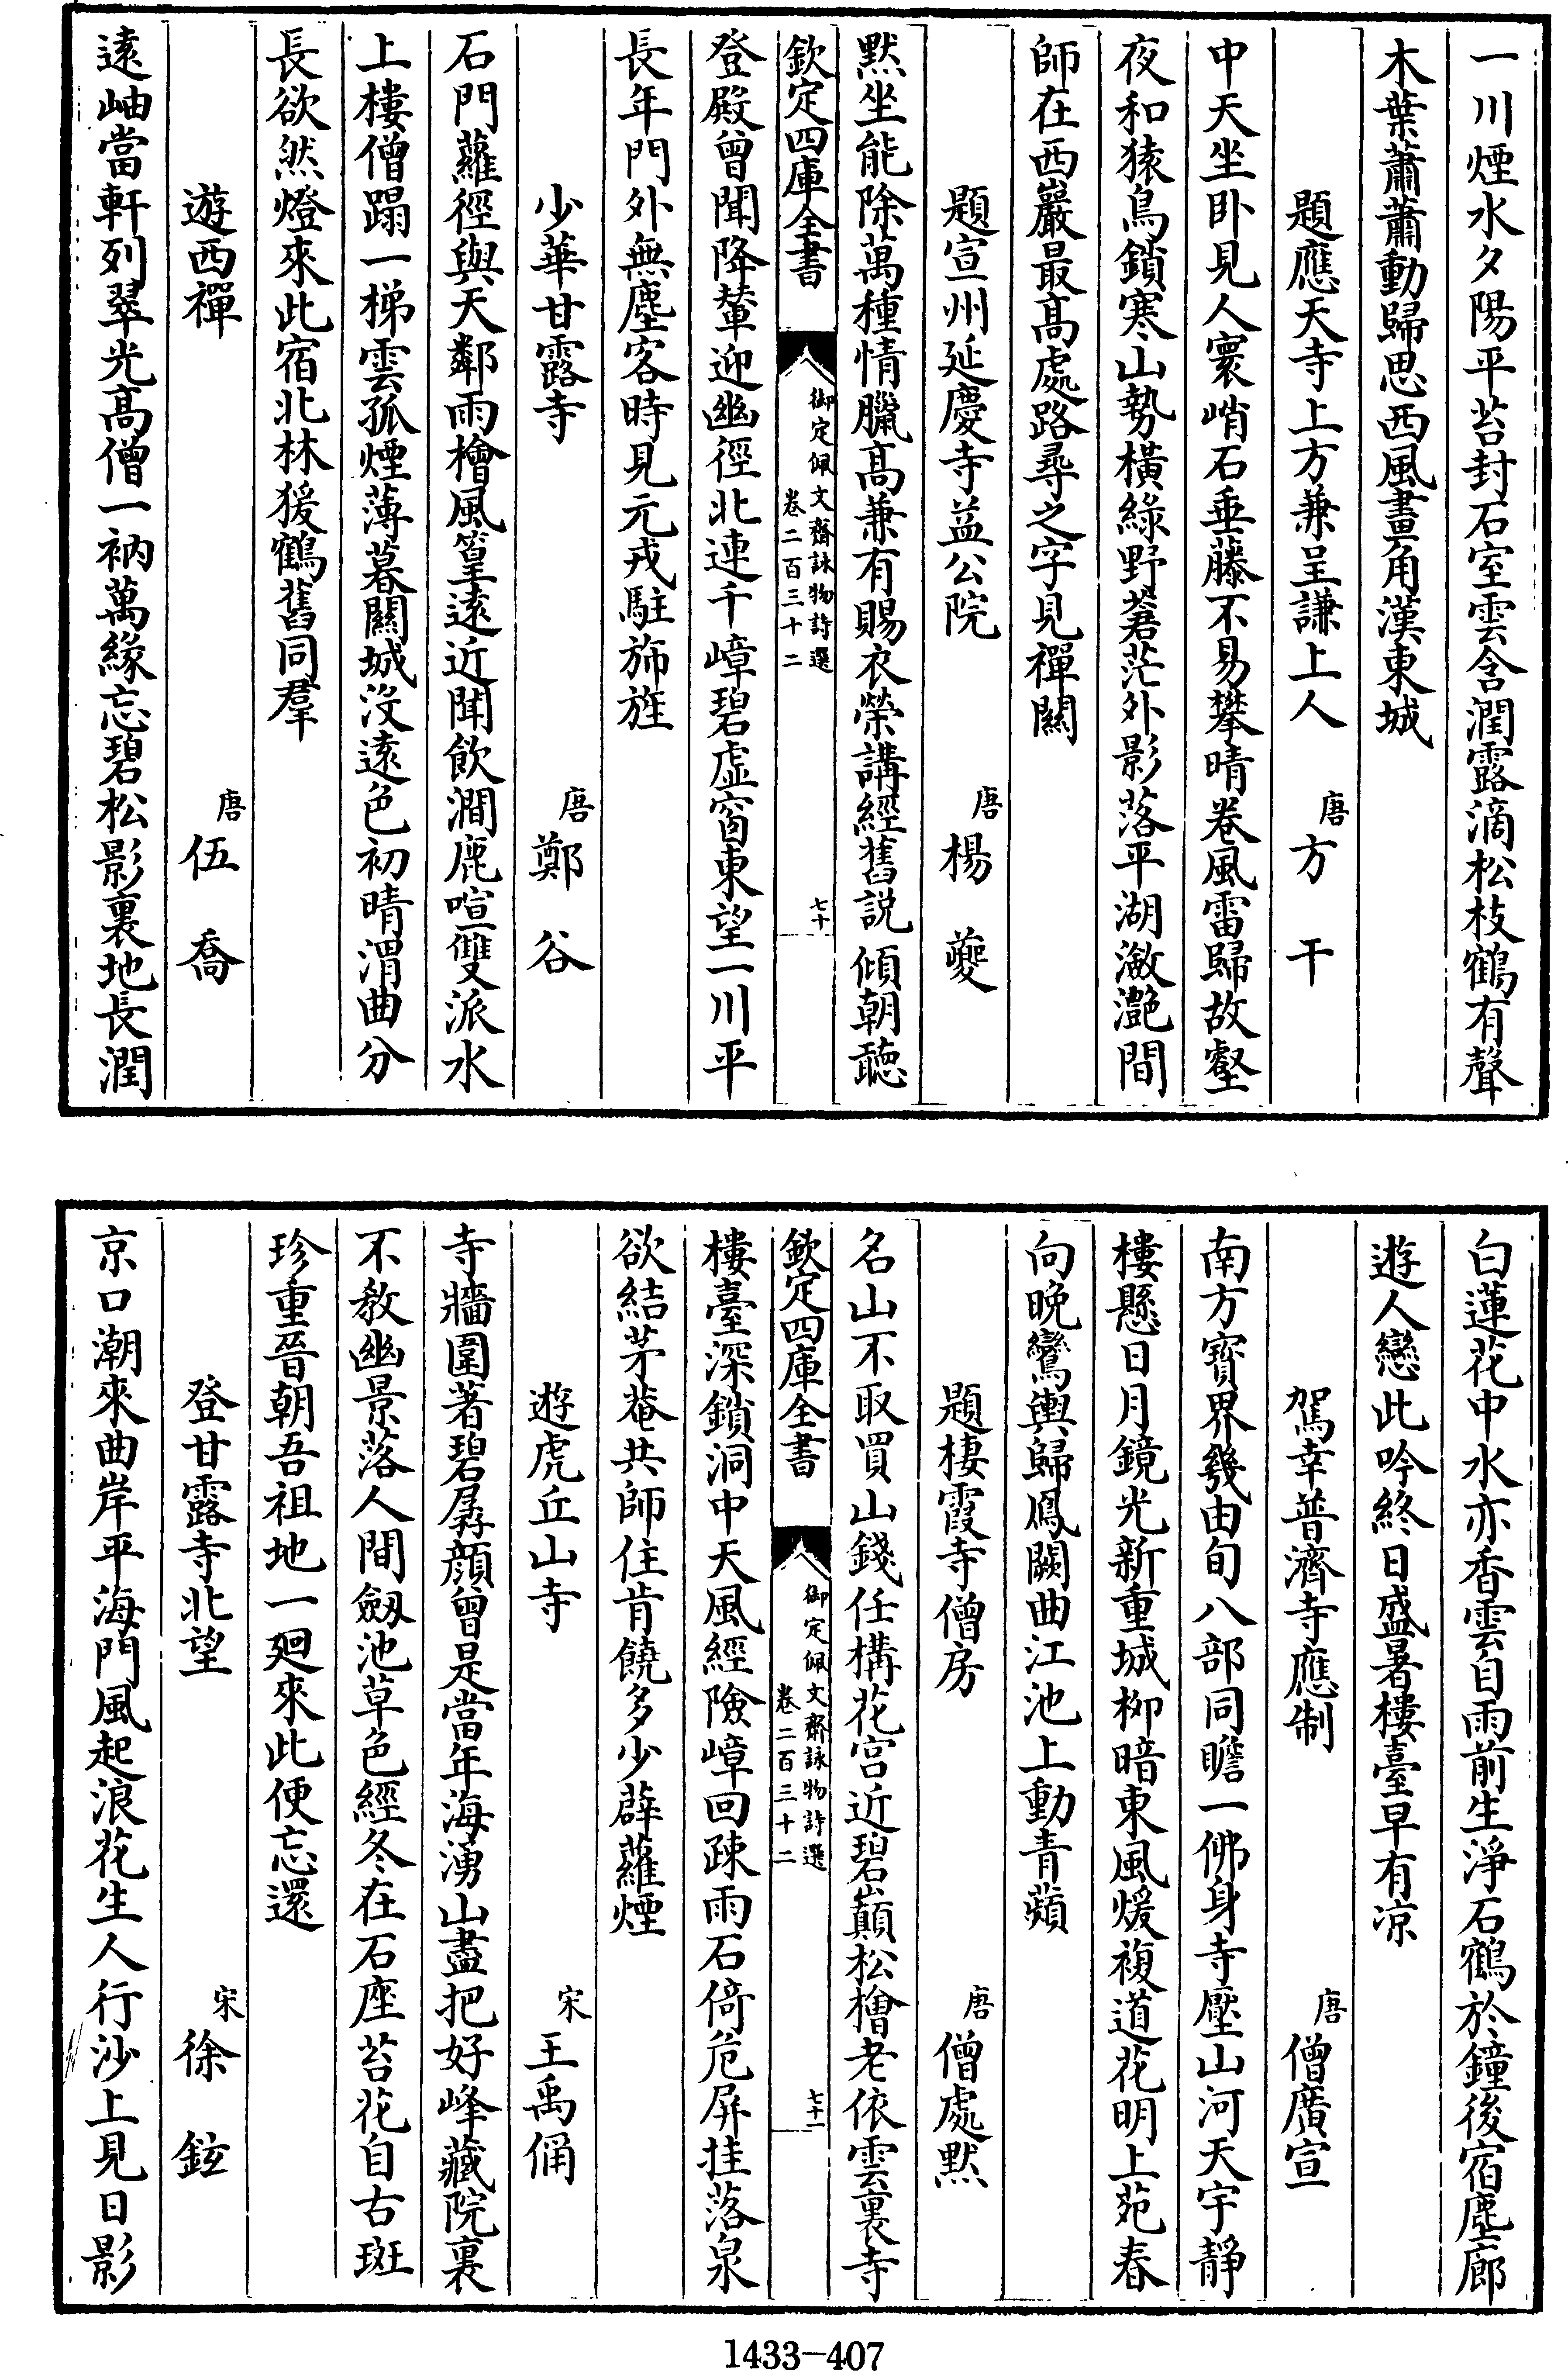 一川煙水夕陽平苔封石室雲含潤露滴松枝鶴有聲
木葉蕭蕭動歸思西風畫角漢東城
題應天寺上方兼呈謙上人
唐方干
中天坐卧見人寰峭石垂藤不易攀晴卷風雷歸故壑
夜和猿鳥鎖寒山勢橫綠野蒼茫外影落平湖瀲灩間
師在西巖最髙處路尋之字見禪關
題宣州延慶寺益公院
唐楊夔
黙坐能除萬種情臘髙兼有賜衣榮講經舊説傾朝聽
欽定四庫全書
御定佩文齋詠物詩選
卷二百三十二
七十
登殿曾聞降輦迎幽徑北連千嶂碧虛窗東望一川平
長年門外無塵客時見元戎駐斾旌
少華甘露寺
唐鄭谷
石門蘿徑與天鄰雨檜風篁遠近聞飲澗鹿喧雙派水
上樓僧蹋一梯雲孤煙薄暮關城沒遠色初晴渭曲分
長欲然燈來此宿北林猨鶴舊同羣
遊西禪
唐伍喬
遠岫當軒列翠光髙僧一衲萬緣忘碧松影裏地長潤
白蓮花中水亦香雲自雨前生淨石鶴於鐘後宿塵廊
遊人戀此吟終日盛暑樓臺早有凉
駕幸普濟寺應制
唐僧廣宣
南方寳界幾由旬八部同瞻一佛身寺壓山河天宇靜
樓懸日月鏡光新重城柳暗東風煖複道花明上苑春
向晚鸞輿歸鳳闕曲江池上動青蘋
題棲霞寺僧房
唐僧處黙
名山不取買山錢任構花宮近碧巔松檜老依雲裏寺
欽定四庫全書
御定佩文齋詠物詩選
卷二百三十二
七十一
樓臺深鎖洞中天風經險嶂回疎雨石倚危屏挂落泉
欲結茅菴共師住肯饒多少薜蘿煙
遊虎丘山寺
宋王禹偁
寺牆圍著碧孱顔曾是當年海湧山盡把好峰藏院裏
不敎幽景落人間劔池草色經冬在石座苔花自古斑
珍重晉朝吾祖地一廻來此便忘還
登甘露寺北望
宋徐鉉
京口潮來曲岸平海門風起浪花生人行沙上見日影
1433-407